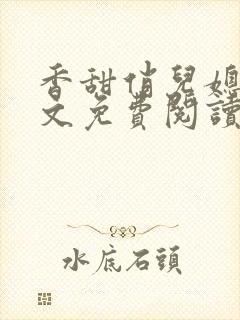 香甜俏兒媳
文免費閱讀
水底石頭